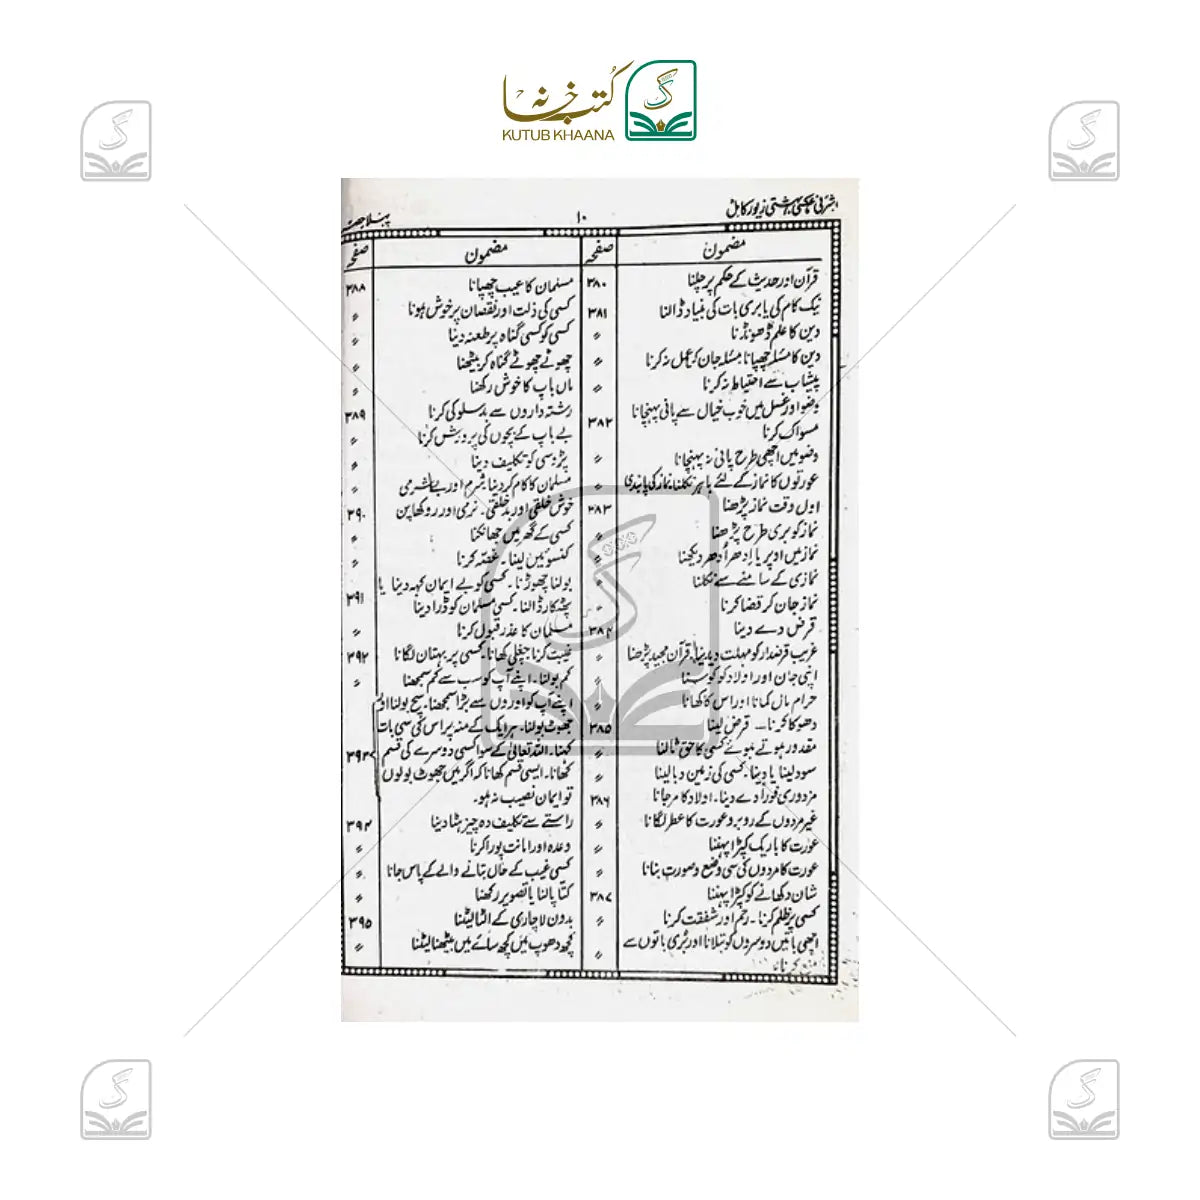 کتب خانہ
KUTUB KHAANA
اشرفی عکسی بہشتی زیور کامل
۱۰
پہلا حصہ
مضمون صفحہ
قرآن اور حدیث کے حکم پر چلنا ۳۸۰
نیک کام کی یا بری بات کی بنیاد ڈالنا ۳۸۱
دین کا علم ڈھونڈنا 〃
دین کا مسئلہ چھپانا مسئلہ جان کر عمل نہ کرنا 〃
پیشاب سے احتیاط نہ کرنا 〃
وضو اور غسل میں خوب خیال سے پانی پہنچانا ۳۸۲
مسواک کرنا
وضو میں اچھی طرح پانی نہ پہنچانا 〃
عورتوں کا نماز کے لئے باہر نکلنا، نماز کی پابندی
اول وقت نماز پڑھنا ۳۸۳
نماز کو بری طرح پڑھنا 〃
نماز میں اوپر یا اِدھر اُدھر دیکھنا 〃
نمازی کے سامنے سے نکلنا 〃
نماز جان کر قضا کرنا 〃
قرض دے دینا ۳۸۴
غریب قرضدار کو مہلت دیدینا، قرآن مجید پڑھنا 〃
اپنی جان اور اولاد کو کوسنا 〃
حرام مال کمانا اور اس کا کھانا 〃
دھوکا کرنا ۔ قرض لینا ۳۸۵
مقدور ہوتے ہوئے کسی کا حق ٹالنا 〃
سود لینا یا دینا۔ کسی کی زمین دبا لینا 〃
مزدوری فوراً دے دینا۔ اولاد کا مرجانا ۳۸۶
غیر مردوں کے روبرو عورت کا عطر لگانا 〃
عورت کا باریک کپڑا پہننا 〃
عورت کا مردوں کی سی وضع و صورت بنانا 〃
شان دکھانے کو کپڑا پہننا ۳۸۷
کسی پر ظلم کرنا ۔ رحم اور شفقت کرنا 〃
اچھی باتیں دوسروں کو بتلانا اور بُری باتوں سے 〃
منع کرنا
مضمون صفحہ
مسلمان کا عیب چھپانا ۳۸۸
کسی کی ذلت اور نقصان پر خوش ہونا 〃
کسی کو کسی گناہ پر طعنہ دینا 〃
چھوٹے چھوٹے گناہ کر بیٹھنا 〃
ماں باپ کا خوش رکھنا 〃
رشتہ داروں سے بدسلوکی کرنا ۳۸۹
بے باپ کے بچوں کی پرورش کرنا 〃
پڑوسی کو تکلیف دینا 〃
مسلمان کا کام کر دینا، شرم اور بے شرمی 〃
خوش خلقی اور بدخلقی ۔ نرمی اور روکھا پن ۳۹۰
کسی کے گھر میں جھانکنا 〃
کنسوئیں لینا ۔ غصہ کرنا 〃
بولنا چھوڑنا ۔ کسی کو بے ایمان کہہ دینا یا
پھٹکار ڈالنا ۔ کسی مسلمان کو ڈرا دینا ۳۹۱
مسلمان کا عذر قبول کرنا 〃
غیبت کرنا چغلی کھانا ۔ کسی پر بہتان لگانا ۳۹۲
کم بولنا ۔ اپنے آپ کو سب سے کم سمجھنا 〃
اپنے آپ کو اوروں سے بڑا سمجھنا ۔ سچ بولنا اور
جھوٹ بولنا ۔ ہر ایک کے منہ پر اس کی سی بات
کہنا ۔ اللہ تعالیٰ کے سوا کسی دوسرے کی قسم ۳۹۳
کھانا ۔ ایسی قسم کھانا کہ اگر میں جھوٹ بولوں
تو ایمان نصیب نہ ہو۔
راستے سے تکلیف دہ چیز ہٹا دینا ۳۹۴
وعدہ اور امانت پورا کرنا 〃
کسی غیب کے حال بتانے والے کے پاس جانا 〃
کتا پالنا یا تصویر رکھنا 〃
بدون لاچاری کے الٹا لیٹنا ۳۹۵
کچھ دھوپ میں کچھ سائے میں بیٹھنا لیٹنا 〃